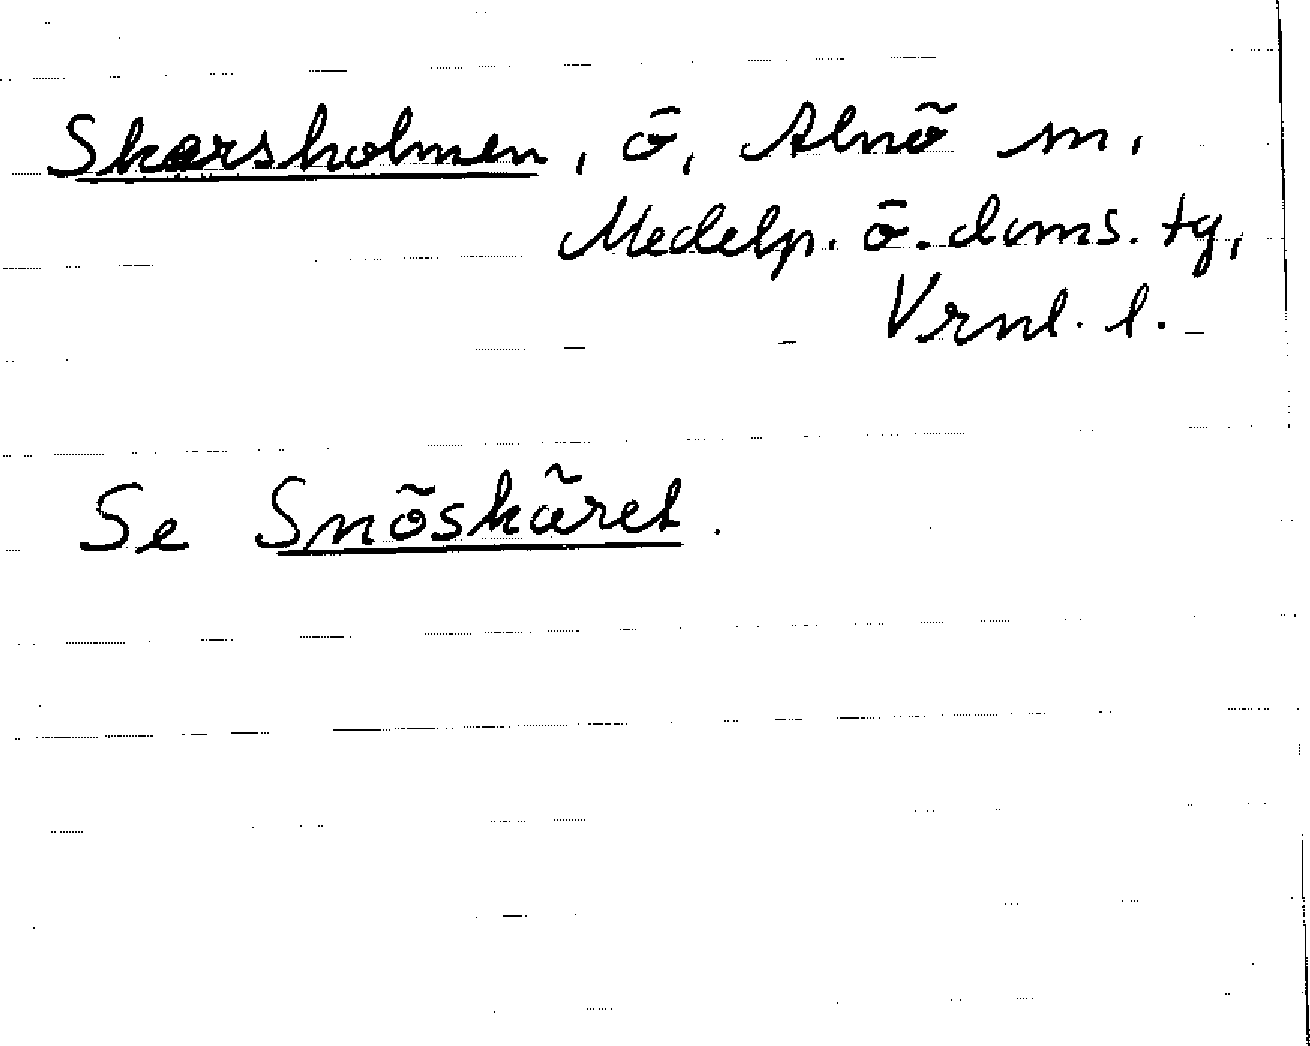 Skarsholmen, ö, Alnö sn,
Medelp. ö. doms. tg,
Vrnl. l.
Se Snöskäret.